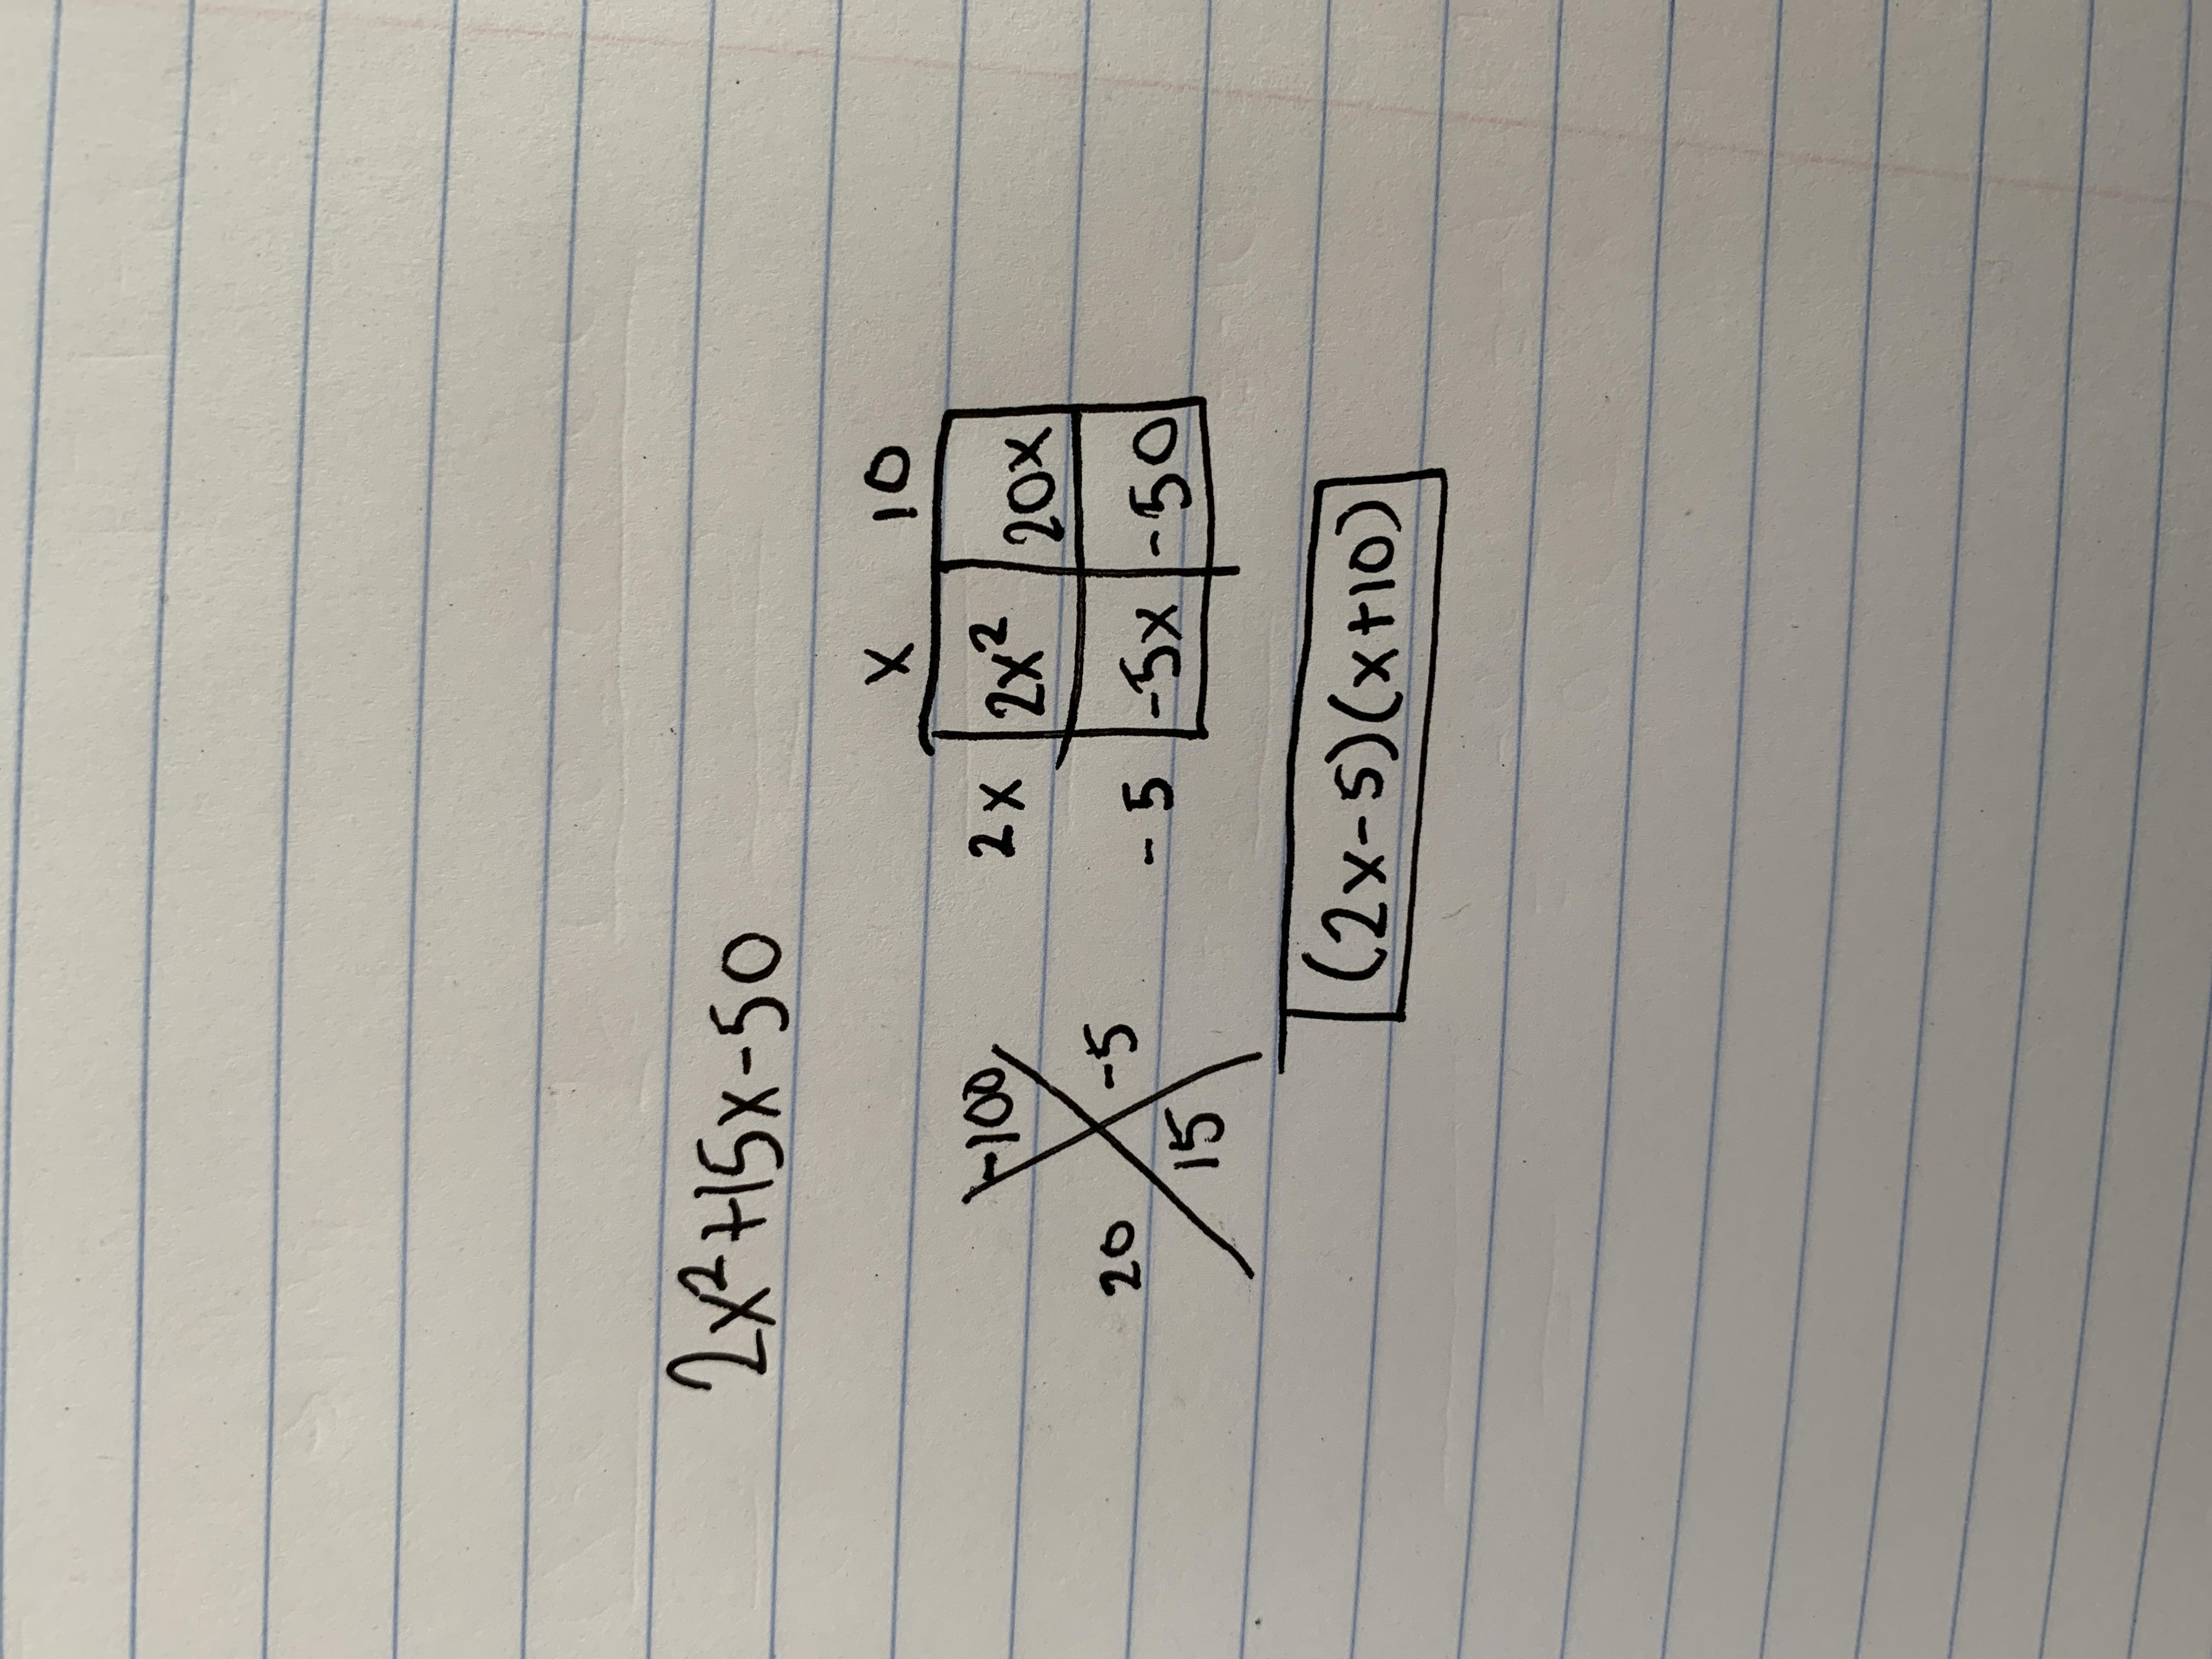 2x²+15x-50
-100
20 -5
15
x 10
2x 2x² 20x
-5 -5x -50
(2x-5)(x+10)